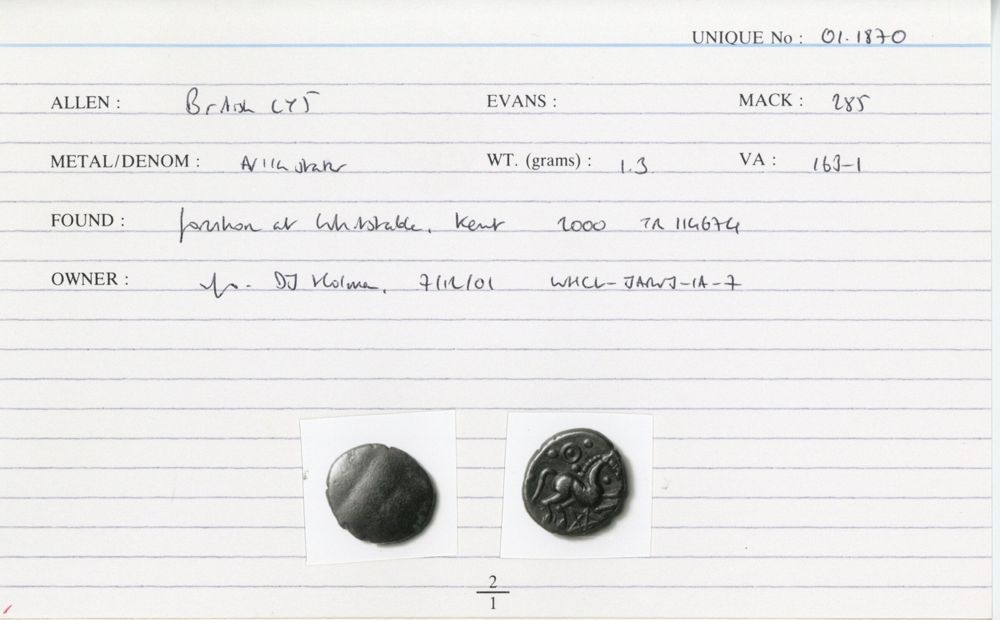 UNIQUE No : 01.1870
ALLEN : British LY5 EVANS : MACK : 285
METAL/DENOM : AV 1/4 stater WT. (grams) : 1.3 VA : 163-1
FOUND : foreshore at Whitstable, Kent 2000 TR 114674
OWNER : DJ Holman, 7/12/01 IA-7
2
1